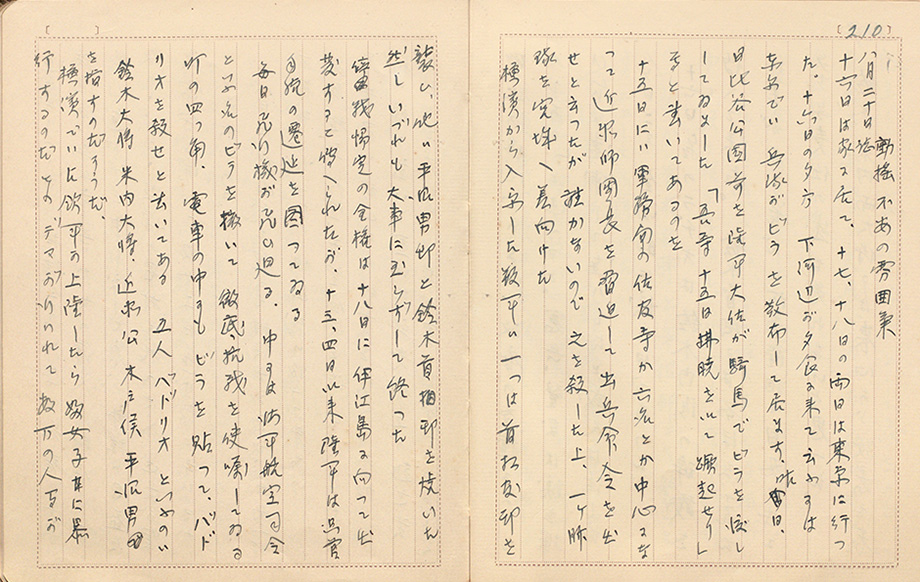 210
動揺不安の雰囲気
八月二十日 記
十六日は家に居て、十七、十八日の両日は東京に行つ
た。十六日の夕方 下河辺が夕食に来て云ふには
東京でハ 兵隊がビラを散布して居ます。昨日
日比谷公園前を陸軍大佐が騎馬でビラを渡し
してゐました 「吾等十五日払暁を以て蹶起せり」
等と書いてあるのを
十五日にハ軍務局の佐官等が六名とか中心にな
つて近衛師団長を脅迫して出兵命令を出
せと云つたが聴かないので 之を殺した上、一ヶ師
団を宮城へ差向けた
横浜から入京した叛軍ハ一つは首相官邸を
襲ひ、他ハ平沼男邸と鈴木首相邸を焼いた
然しいづれも大事に至らずして終つた
停戦協定の全権は十八日に伊江島に向つて出
発すると伝へられたが、十三、四日以来陸軍は
自統の遷延を図つてゐる
毎日飛行機が飛び廻る。中には海軍航空司令
といふ名のビラを撒いて 徹底抗戦を使嗾してゐる
町の四つ角、電車の中にもビラを貼つて、バド
リオを殺せと書いてある 五人のバドリオといふのハ
鈴木大将 米内大将、近衛公 木戸侯 平沼男
を指すのださうだ。
横浜でハ敵軍が上陸したら婦女子等に暴
行するのだとのデマがとバれて 数万の人達が